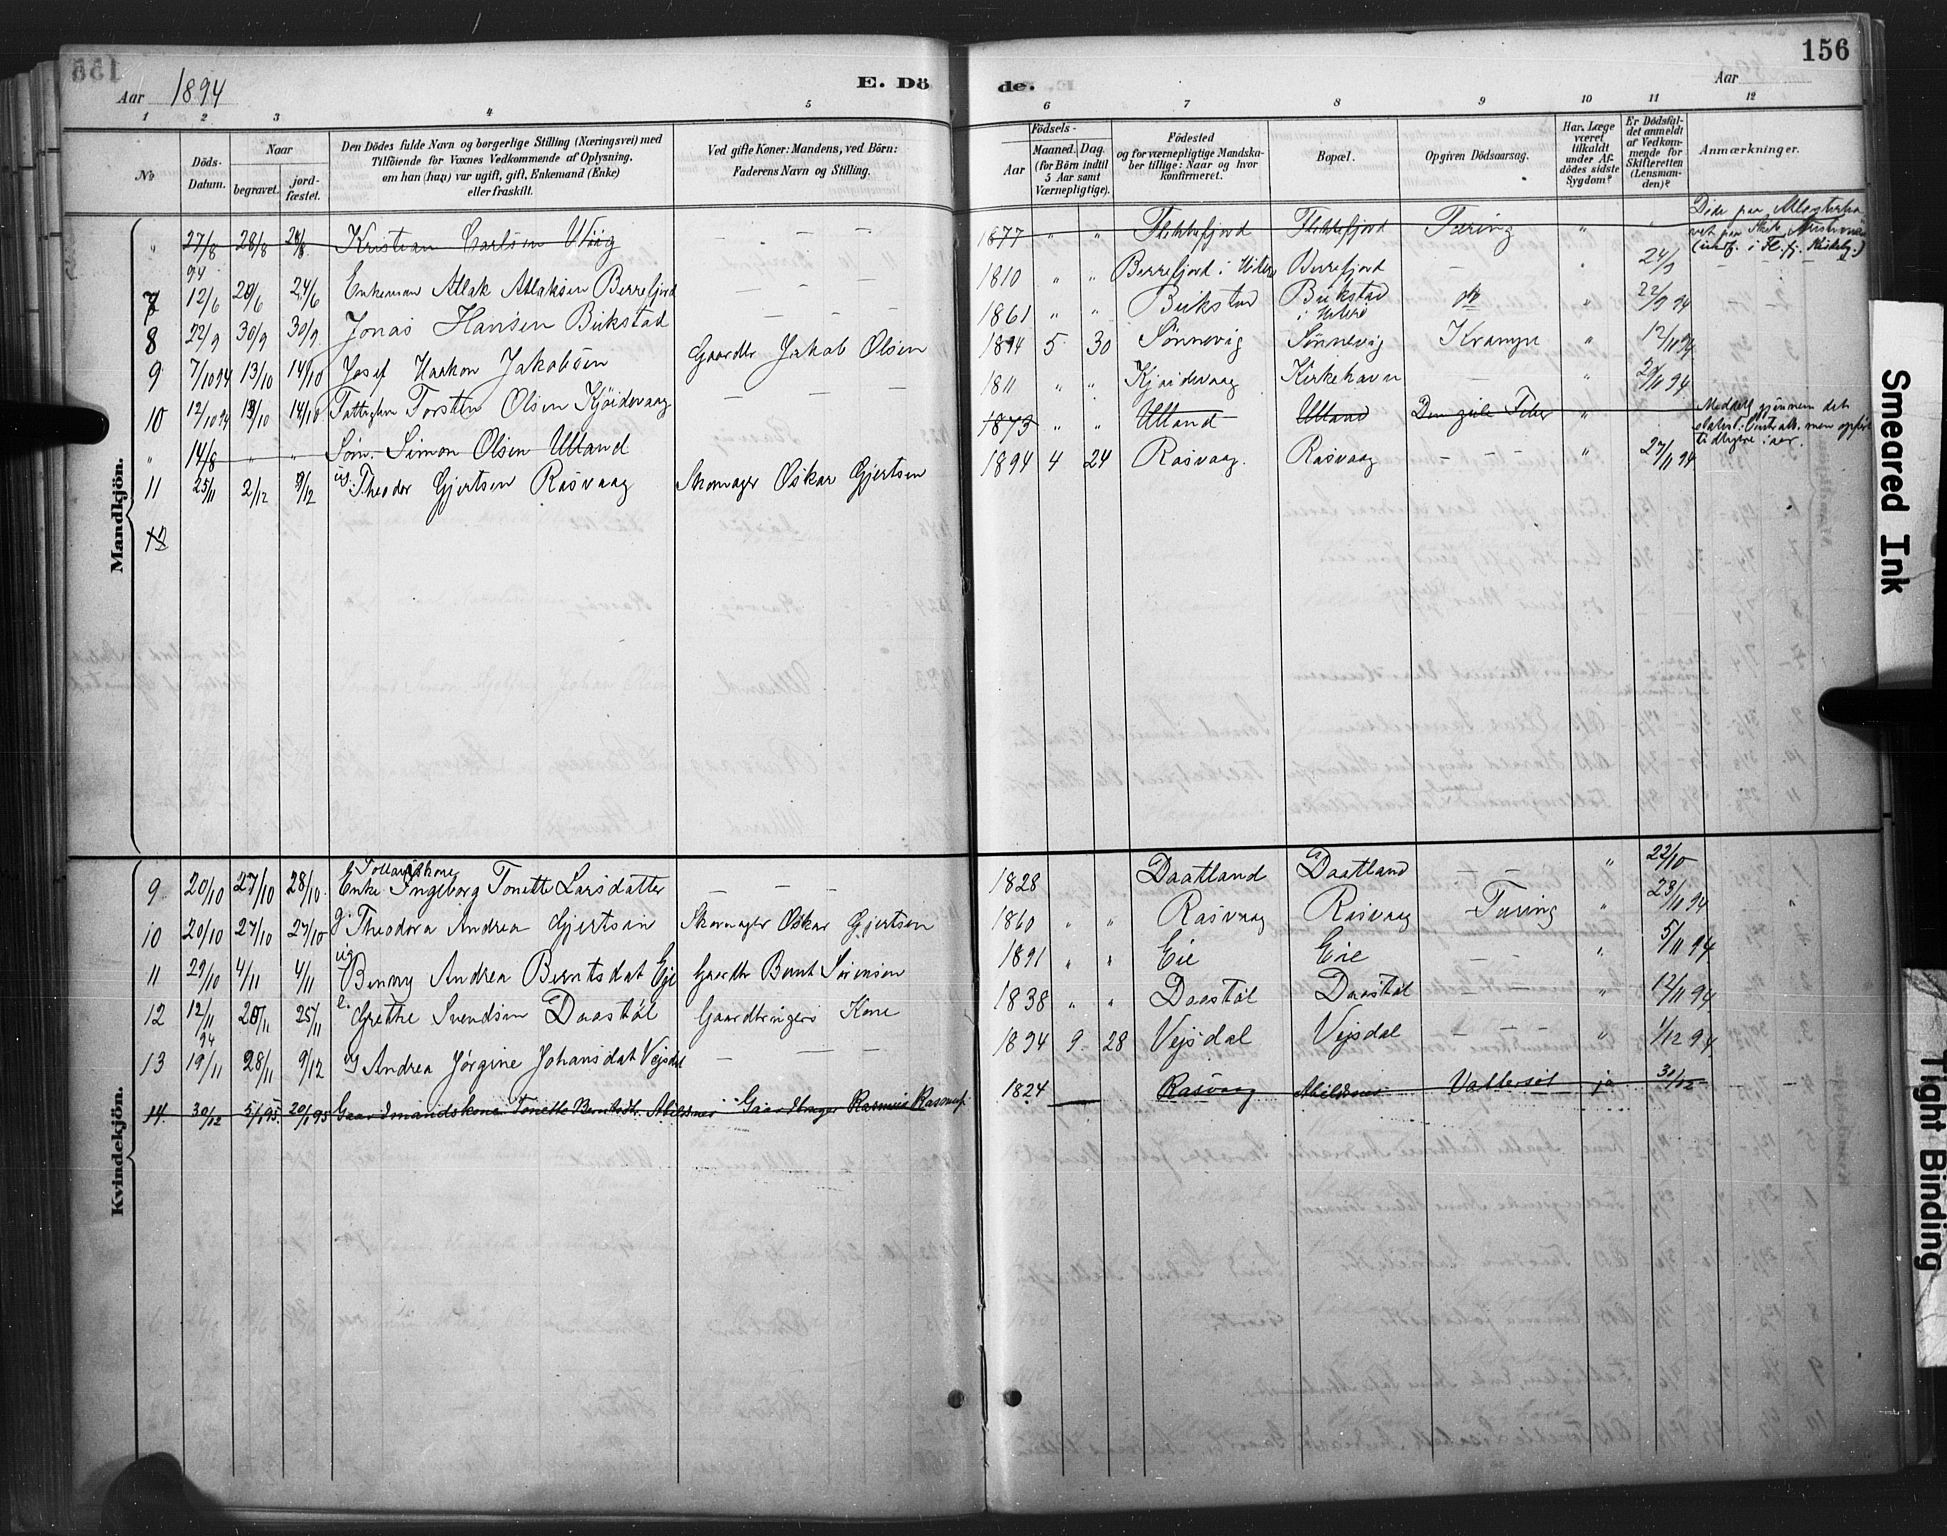 156
Aar 1894
E. Dö
de.
Aar
1 2 3 4 5 6 7 8 9 10 11 12
No
Döds-
Datum.
Naar
begravet.
jord-
fæstet.
Den Dödes fulde Navn og borgerlige Stilling (Næringsvei) med
Tilföiende for Voxnes Vedkommende af Oplysning,
om han (hun) var ugift, gift, Enkemand (Enke)
eller fraskilt.
Ved gifte Koner: Mandens, ved Börn:
Faderens Navn og Stilling.
Födsels-
Aar
Maaned. Dag.
(for Börn indtil
5 Aar samt
Værnepligtige).
Födested
og for værnepligtige Mandska-
ber tillige: Naar og hvor
konfirmeret.
Bopæl.
Opgiven Dödsaarsag.
Har Læge
været
tilkaldt
under Af-
dödes sidste
Sygdom?
Er Dödsfal-
det anmeldt
af Vedkom-
mende for
Skifteretten
(Lensman-
den)?
Anmærkninger.
Mandkjön.
" 27/8 28/8 Kristian Carlsen - - - 1877 " " Flekkefjord Flekkefjord Tæring " "
7 12/6 20/6 24/6 Enkeman Atlak Atlaksen Berrefjord - - - 1810 " " Berrefjord i Hitterø Berrefjord - "
8 22/9 30/9 30/9 Jonas Hansen Bukstad - - - 1861 " " Bukstad Bukstad i Hitterø " 22/9 94
9 7/10 94 13/10 14/10 Josef Haakon Jakobsen Gaardbr Jakob Olsen 1894 5 30 Sønnevig Sønnevig Krampe " 12/11 94
10 12/10 94 14/10 Fattiglem Torsten Olsen Kjöidevaag - - 1811 " " Kjøidevaag Kirkehavn - "
" 14/8 " " Søm. Simon Olsen Ulland 1873 " " Ulland Ulland Den gule Feber " Meddelt gjennem det statist. Centralb. men opført tidligere i aar.
11 25/11 2/12 9/12 Theodor Gjertsen Rasvaag Skomager Oskar Gjertsen 1894 4 24 Rasvaag. Rasvaag - - - " 27/11 94
12
Kvindekjön.
9 20/10 27/10 28/10. Enke Ingeborg Tonette Larsdatter - - - 1828 Daatland Daatland " 22/10
10 20/10 27/10 27/10 g. Theodora Andrea Gjertsen Skomager Oskar Gjertsen 1860 " " Rasvaag Rasvaag Tæring " 23/11 94
11 29/10 4/11 4/11 ug. Benny Andrea Berntsdat Eje Gaardbr Bernt Sörensen 1891 " " Eie Eie " 5/11 94
12 12/11 94 25/11 Grethe Svendsen Daastöl Gaardbrugers Kone 1838 " " Daastøl Daastøl - - - " 12/11 94
13 19/11 28/11 9/12 Andrea Jørgine Johansdat Vejsdal - - - 1894 9 28 Vejsdal Vejsdal - - - " 1/12 94
14 30/12 5/1 95. 20/1 95 Gaardmandskone Tonette Berntsdtr. Abildsnes Gaardbruger Rasmus 1824 Rasvaag Abildsnes Vattersot ja 30/12
Smeared Ink
Tight Binding